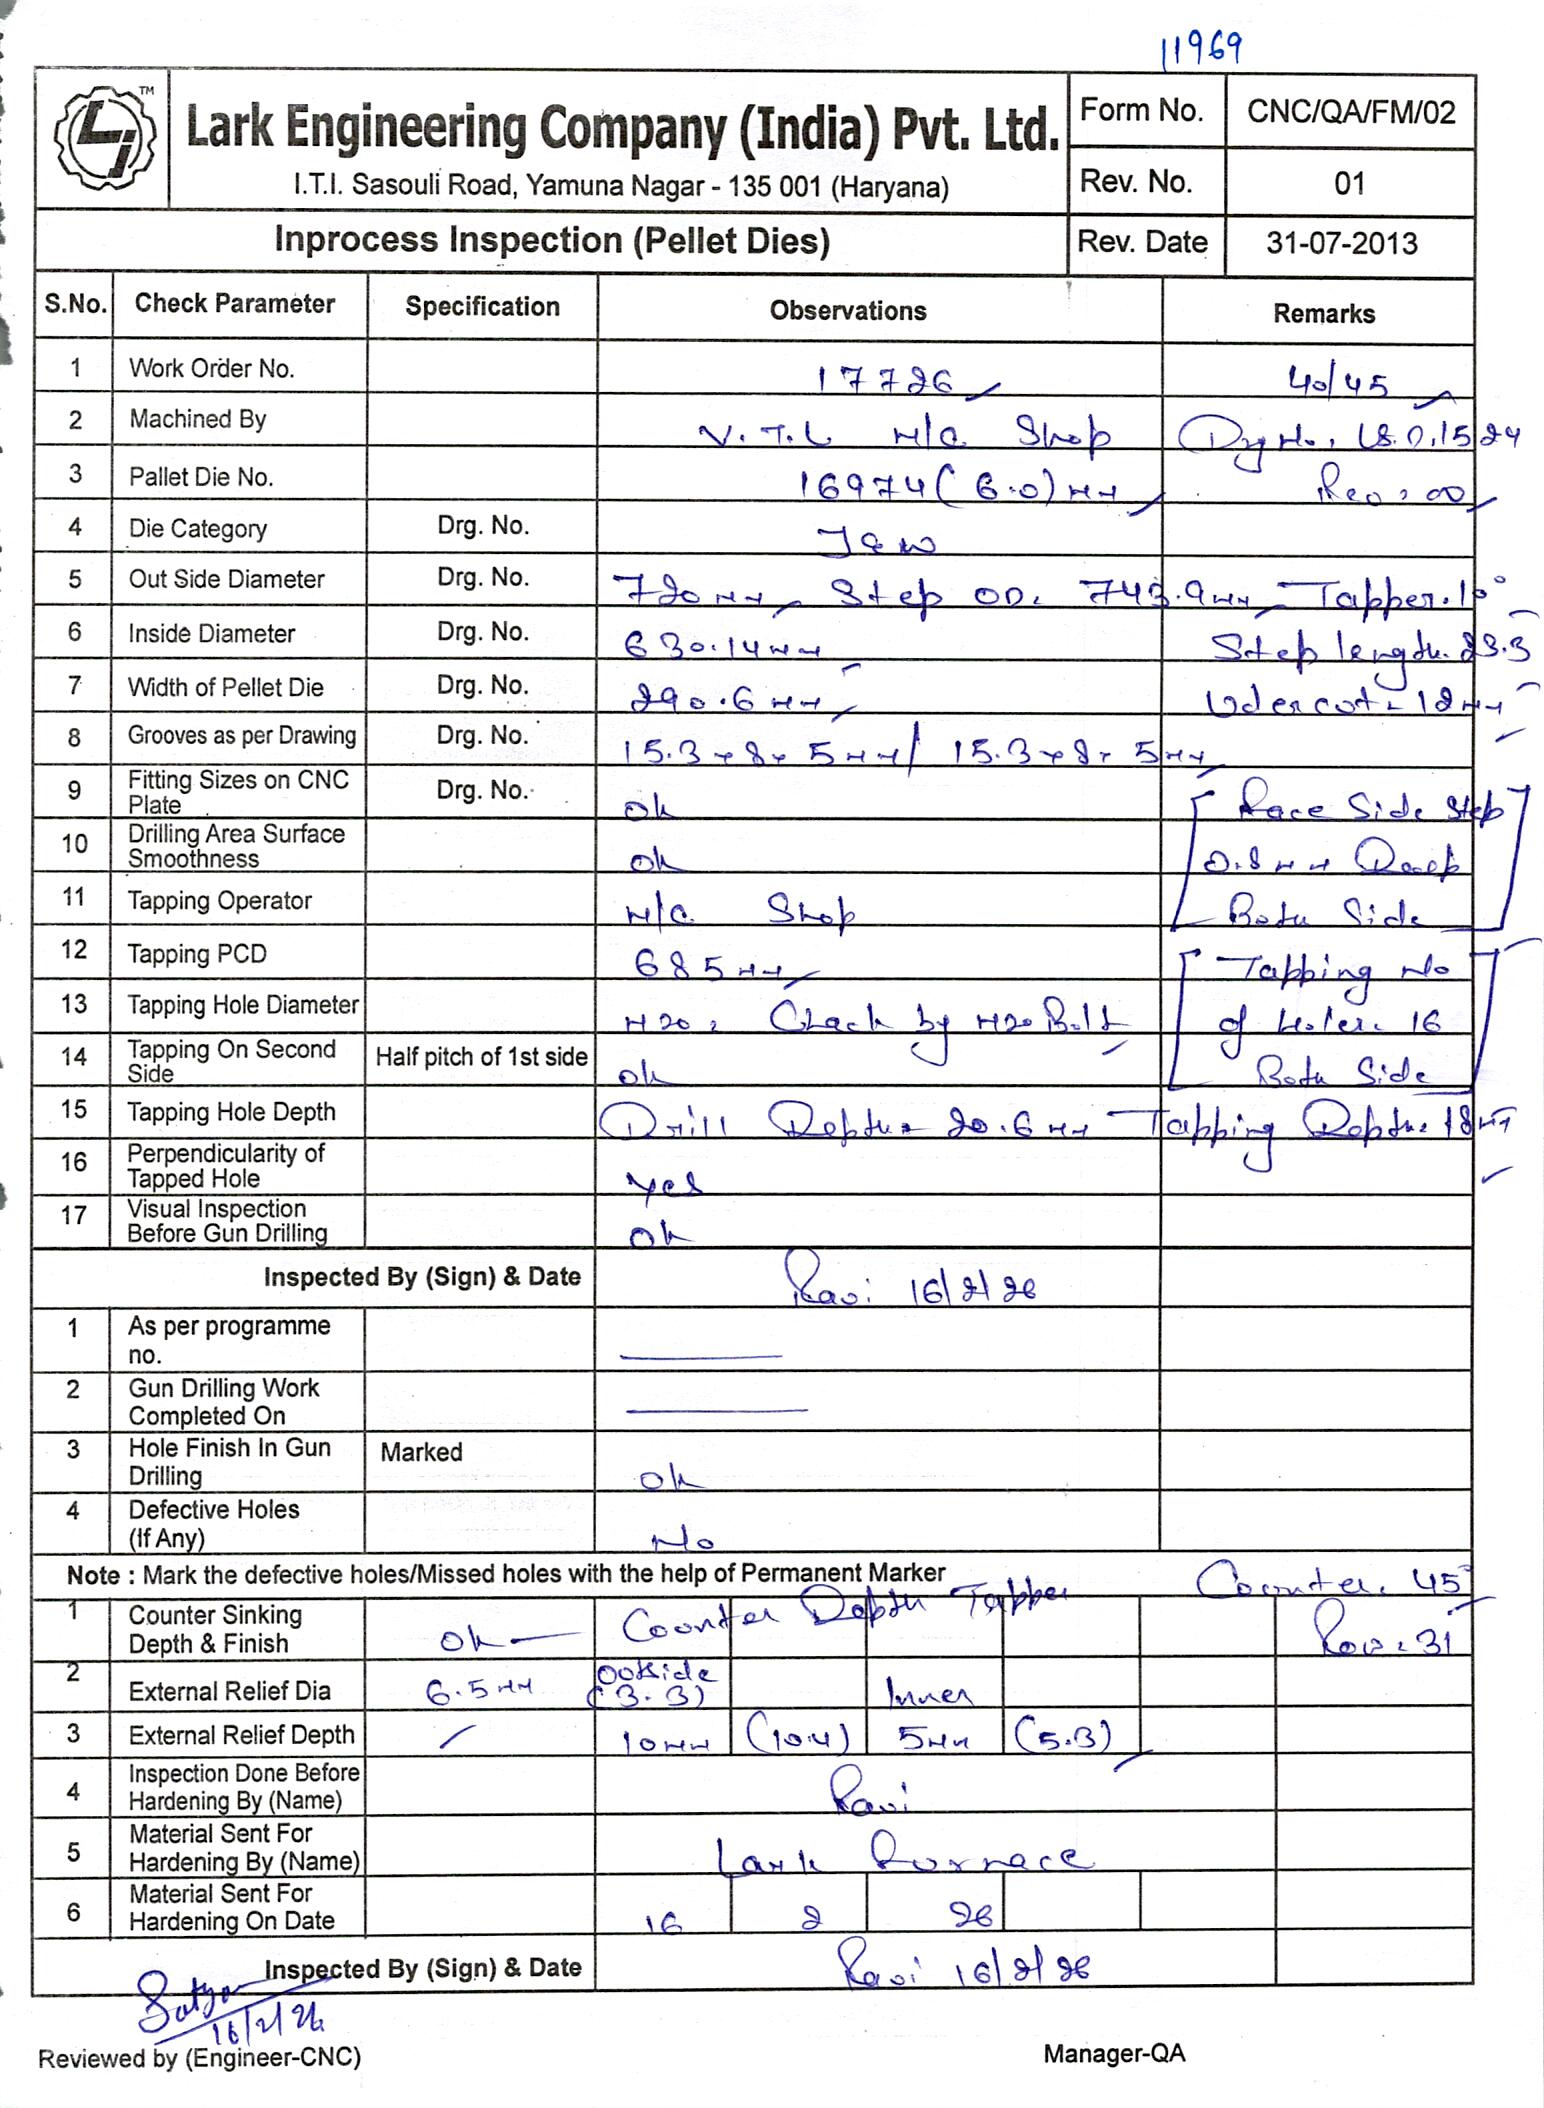 11969
TM
Lark Engineering Company (India) Pvt. Ltd.
I.T.I. Sasouli Road, Yamuna Nagar - 135 001 (Haryana)
Form No. CNC/QA/FM/02
Rev. No. 01
Inprocess Inspection (Pellet Dies) Rev. Date 31-07-2013
S.No. Check Parameter Specification Observations Remarks
1 Work Order No. 17726 40/45
2 Machined By V.T.L M/C Shop Drg No.
3 Pallet Die No. 16974 (6.0) MM Rev: 00
4 Die Category Drg. No.
5 Out Side Diameter Drg. No. 720 MM Step OD. 743.9 MM Tapper. 10°
6 Inside Diameter Drg. No. 630.14 MM Step length. 23.3
7 Width of Pellet Die Drg. No. 290.6 MM Udercut - 12 MM
8 Grooves as per Drawing Drg. No. 15.3 x 8 x 5 MM / 15.3 x 8 x 5 MM
9 Fitting Sizes on CNC Plate Drg. No. ok [ Face Side Step
10 Drilling Area Surface Smoothness ok 0.8 MM Deep
11 Tapping Operator M/C Shop Both Side ]
12 Tapping PCD 685 MM [ Tapping No
13 Tapping Hole Diameter M20, Chack by M20 Bolt of Holes. 16
14 Tapping On Second Side Half pitch of 1st side ok Both Side ]
15 Tapping Hole Depth Drill Depth - 20.6 MM Tapping Depth. 18 MM
16 Perpendicularity of Tapped Hole yes
17 Visual Inspection Before Gun Drilling ok
Inspected By (Sign) & Date Ravi 16/2/26
1 As per programme no.
2 Gun Drilling Work Completed On
3 Hole Finish In Gun Drilling Marked ok
4 Defective Holes (If Any) No
Note : Mark the defective holes/Missed holes with the help of Permanent Marker Counter. 45°
1 Counter Sinking Depth & Finish ok Counter Depth Tapper Row: 31
2 External Relief Dia 6.5 MM Ootside (3.3) Inner
3 External Relief Depth 10 MM (10.4) 5 MM (5.3)
4 Inspection Done Before Hardening By (Name) Ravi
5 Material Sent For Hardening By (Name) Lark Furnace
6 Material Sent For Hardening On Date 16 2 26
Inspected By (Sign) & Date Ravi 16/2/26
Satya
16/2/26
Reviewed by (Engineer-CNC) Manager-QA